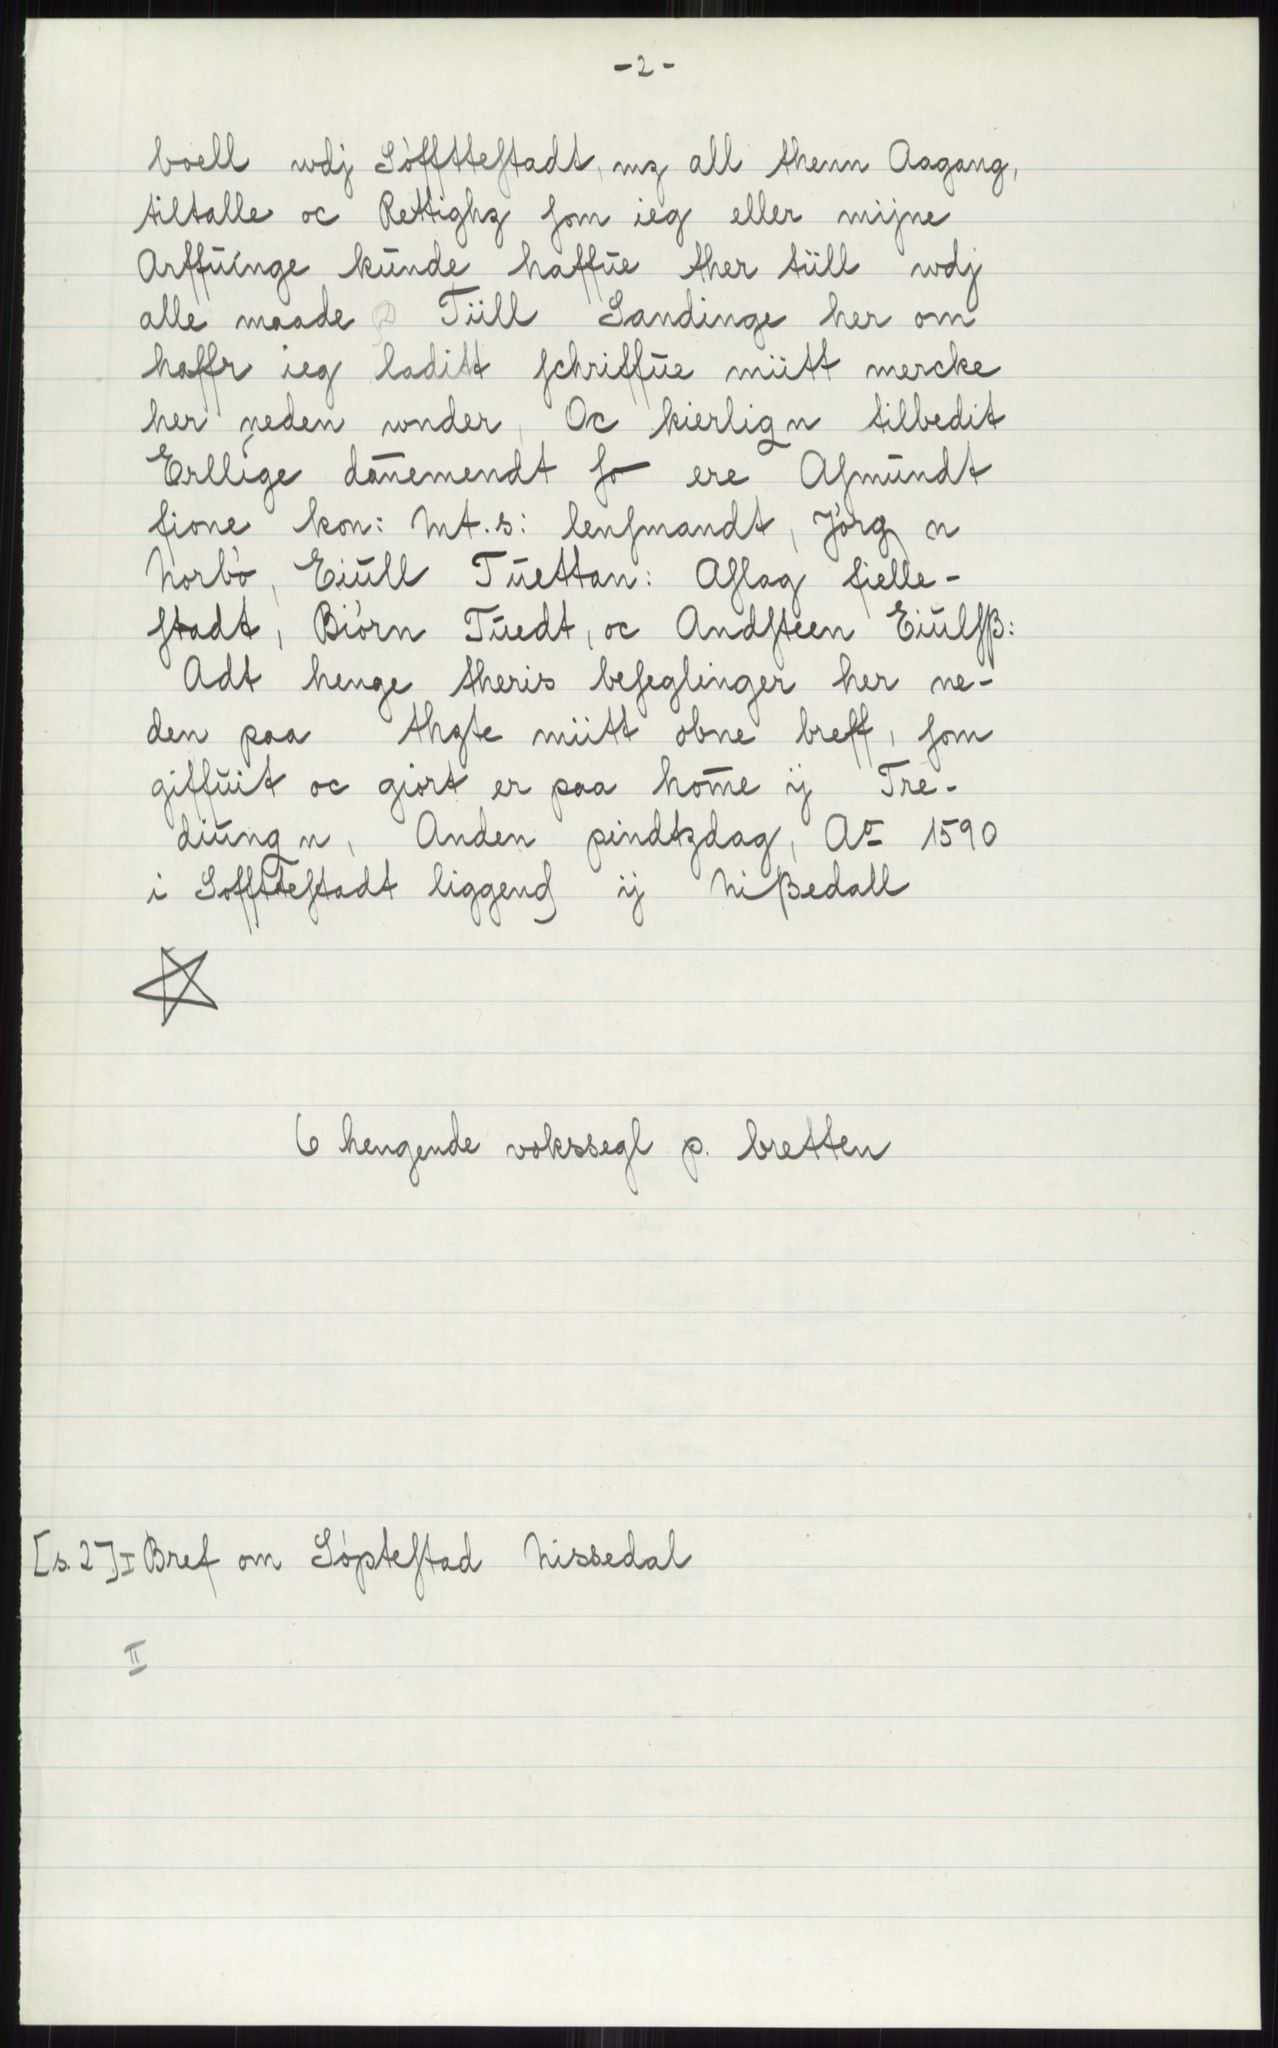 -2-
boell wdj Söfftteſtadt, mꝫ all thenn Aagang,
tiltalle oc Rettighꝫ ſom ieg eller mijne
Arffuinge kunde haffue ther tiill wdj
alle maade Tiill Sandinge her om
haffr ieg laditt ſchriffue miitt mercke
her neden wnder, Oc kierlig n tilbedit
Erllige dānemendt ſo ere Aſmundt
fione kon: Mt.s: lenſmandt, Jörg n
Norbö, Eiull Tuettan: Aſlag fielle-
ſtadt, Biörn Tuedt, oc Andſteen Eiulſß:
Adt henge theris beſeglinger her ne-
den paa thꝫte miitt obne breff, ſom
giffuit oc giort er paa home ij Tre-
diung n, Anden pindtꝫdag, Ao 1590
i Sofftteſtadt liggend ij Nißedall
6 hengende vokssegl p. bretten
[s. 2] I Bref om Söpteſtad Nissedal
II